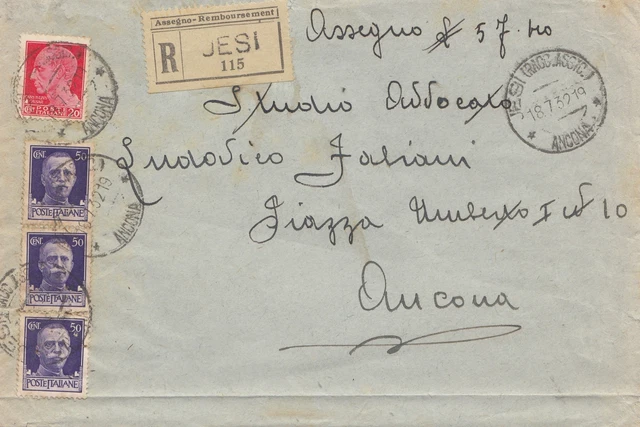 Assegno-Remboursement
R JESI
115
Assegno £ 57.40
JESI (RACC. ASSIC.)
18.7.32.19
ANCONA
Studio Avvocato
Ludovico Fabiani
Piazza Umberto I N 10
Ancona
20
ANCONA
CENT. 50
POSTE ITALIANE
ANCONA
CENT. 50
POSTE ITALIANE
CENT. 50
POSTE ITALIANE